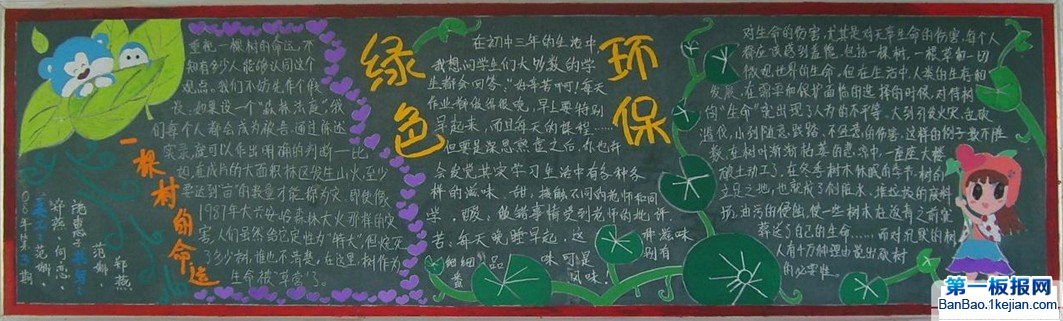 重视一棵树的命运,不
知有多少人能够认同这个
观点。我们不妨先作个假
设,如果设一个"森林法庭",我
们每个人都会成为被告,通过陈述
实景,就可以作出明确的判断一比
如,在成片的大面积林区发生山火,至少
要达到
的数量才能称为灾,即使像
1987年大兴安岭森林大火那样的灾
害,人们虽然当它定性为"特大",但烧死
了多少树,谁也不清楚,在这里,树作为
生命被"草菅"了。
一棵树的命运
绿色
环保
在初中三年的生活中
我想问学生们大多数的学
生都会回答:"好辛苦啊!每天
作业都做得很晚,早上要特别
早起来,而且每天的课程……"
但要是深思熟虑之后,你也许
会发觉其实学习生活中有各种各
样的滋味,甜:接触不同的老师和同
学,
做错事情受到老师的批评
苦:每天晚睡早起,这
种滋味
细细品
味可是
别有
一番
风味。
对生命的伤害,尤其是对无辜生命的伤害,每个人
都应该感到羞愧,包括一棵树,一根草和一切
微观世界的生命,但在生活中,人类的生存和
发展,在需求和保护面临的选择的时候,对待树
的"生命"竟出现了人为的不平等。大到引发火灾,
滥伐,小到随意践踏,不经意的伤害,这样的例子数不胜
数,在树叶渐渐枯黄的悲凉中,一座座大楼
破土动工了,在冬季树木休眠的季节,树的
立足之地,也就成了刨
场,油污的侵蚀,使一些树木在没有之前
葬送了自己的生命……而对死默的树
人有千万种理由说出砍树
的必要性。
08年第3期
范娜、
郑燕
第一板报网
BanBao.1kejian.com